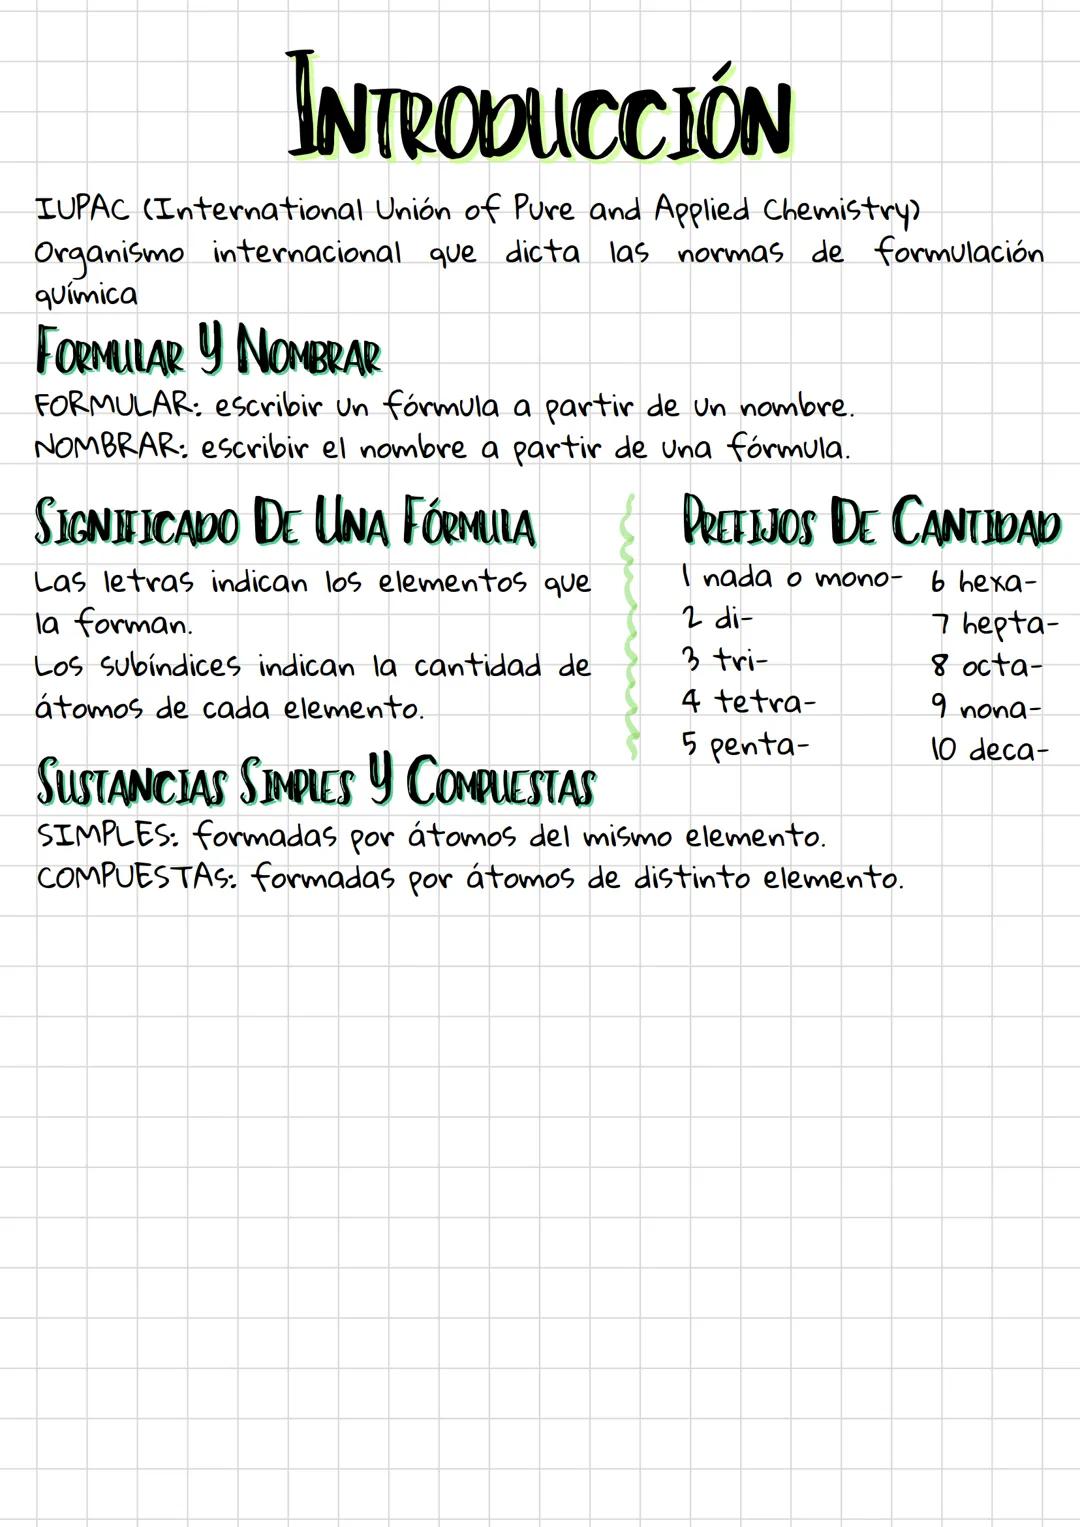 INTRODUCCIÓN
IUPAC (International Unión of Pure and Applied Chemistry)
Organismo internacional que dicta las normas de formulación
química
FORMULAR Y NOMBRAR
FORMULAR: escribir un fórmula a partir de un nombre.
NOMBRAR: escribir el nombre a partir de una fórmula.
SIGNIFICADO DE UNA FÓRMULA
Las letras indican los elementos que
la forman.
Los subíndices indican la cantidad de
átomos de cada elemento.
PREFIJOS DE CANTIDAD
1 nada o mono-
2 di-
3 tri-
4 tetra-
5 penta-
6 hexa-
7 hepta-
8 octa-
9 nona-
10 deca-
SUSTANCIAS SIMPLES Y COMPUESTAS
SIMPLES: formadas por átomos del mismo elemento.
COMPUESTAS: formadas por átomos de distinto elemento.